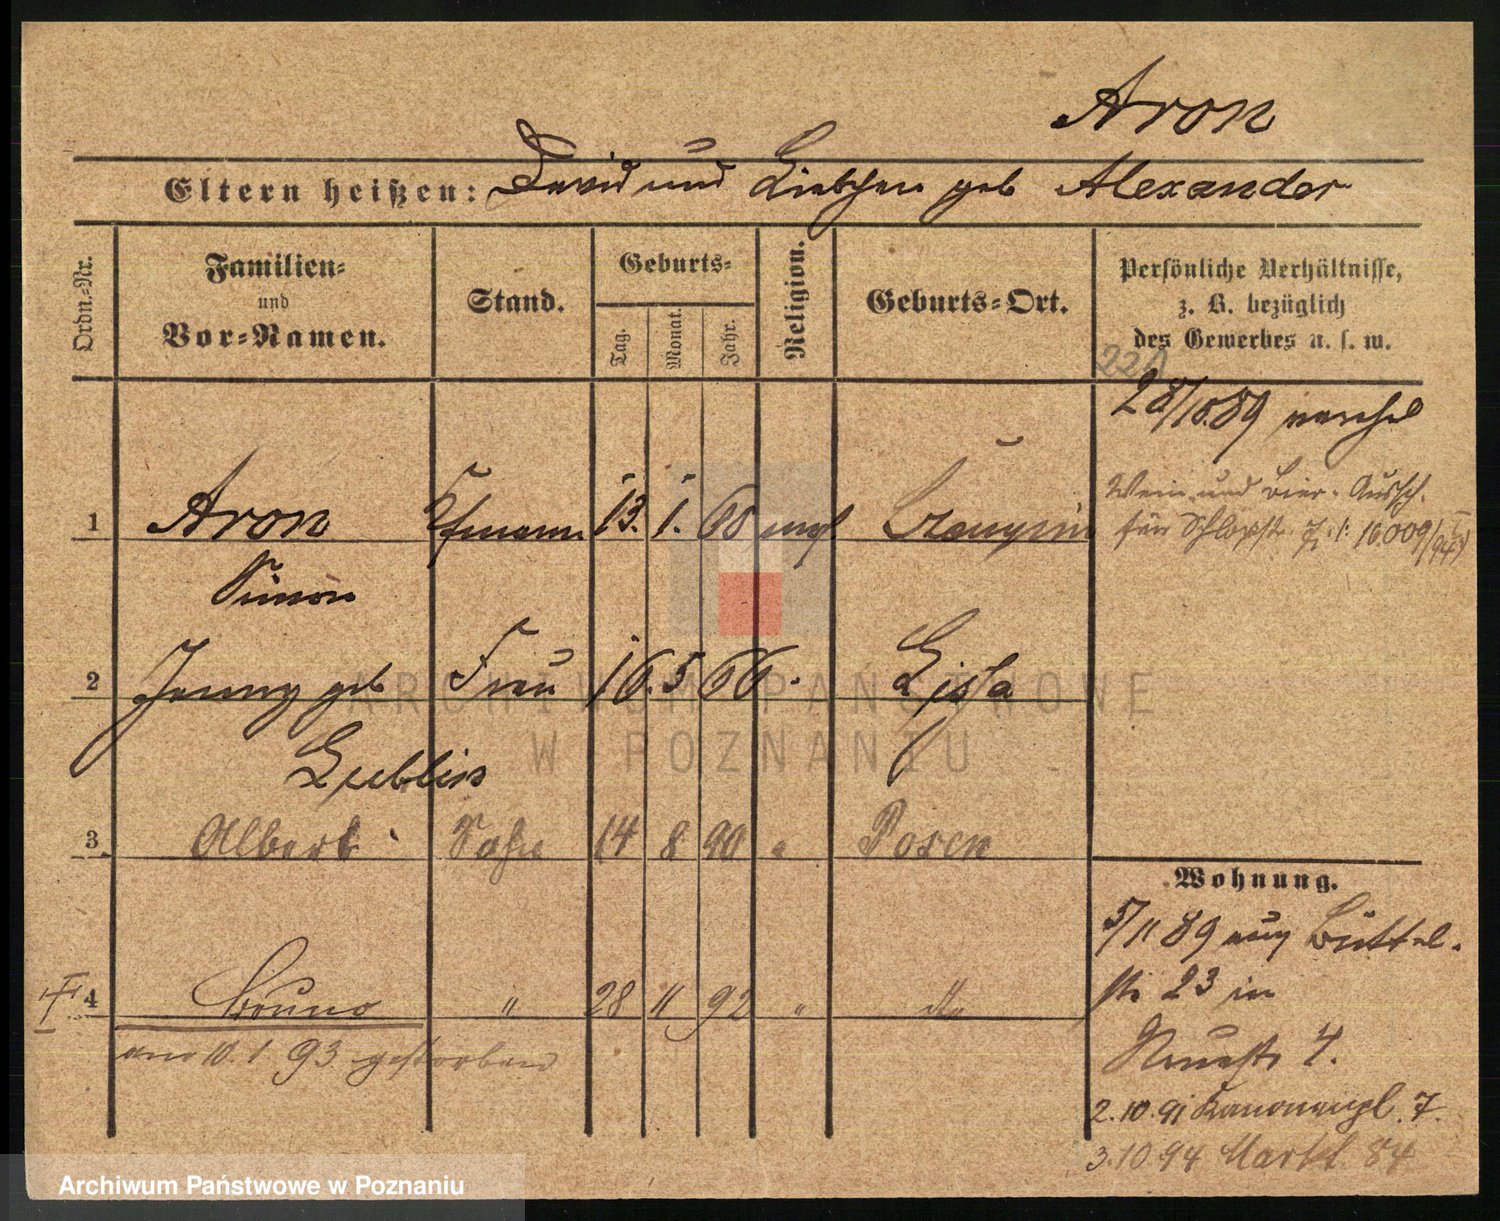 Aron
Eltern heißen: David und Liebchen geb Alexander
Ordn.-Nr.
Familien-
und
Vor-Namen.
Stand.
Geburts-
Tag.
Monat.
Jahr.
Religion.
Geburts-Ort.
Persönliche Verhältnisse,
z. B. bezüglich
des Gewerbes u. s. w.
28/10.89
Wein und Bier-Aussch.
für 16.009/94
1 Aron Kfmann 13. 1. 60
Simon
2 Jenny geb Frau 16. 5 66 Lissa
Lubliss
3 Albert Sohn 14 8 90 " Posen
4 Bruno " 28 11 92 " do
am 10. 1. 93 gestorben
Wohnung.
5/11 89 aus Büttel-
str 23 in
Neuestr 4.
2.10.91 Kanonenpl. 7.
3.10.94 Markt 84
ARCHIWUM PAŃSTWOWE
W POZNANIU
Archiwum Państwowe w Poznaniu